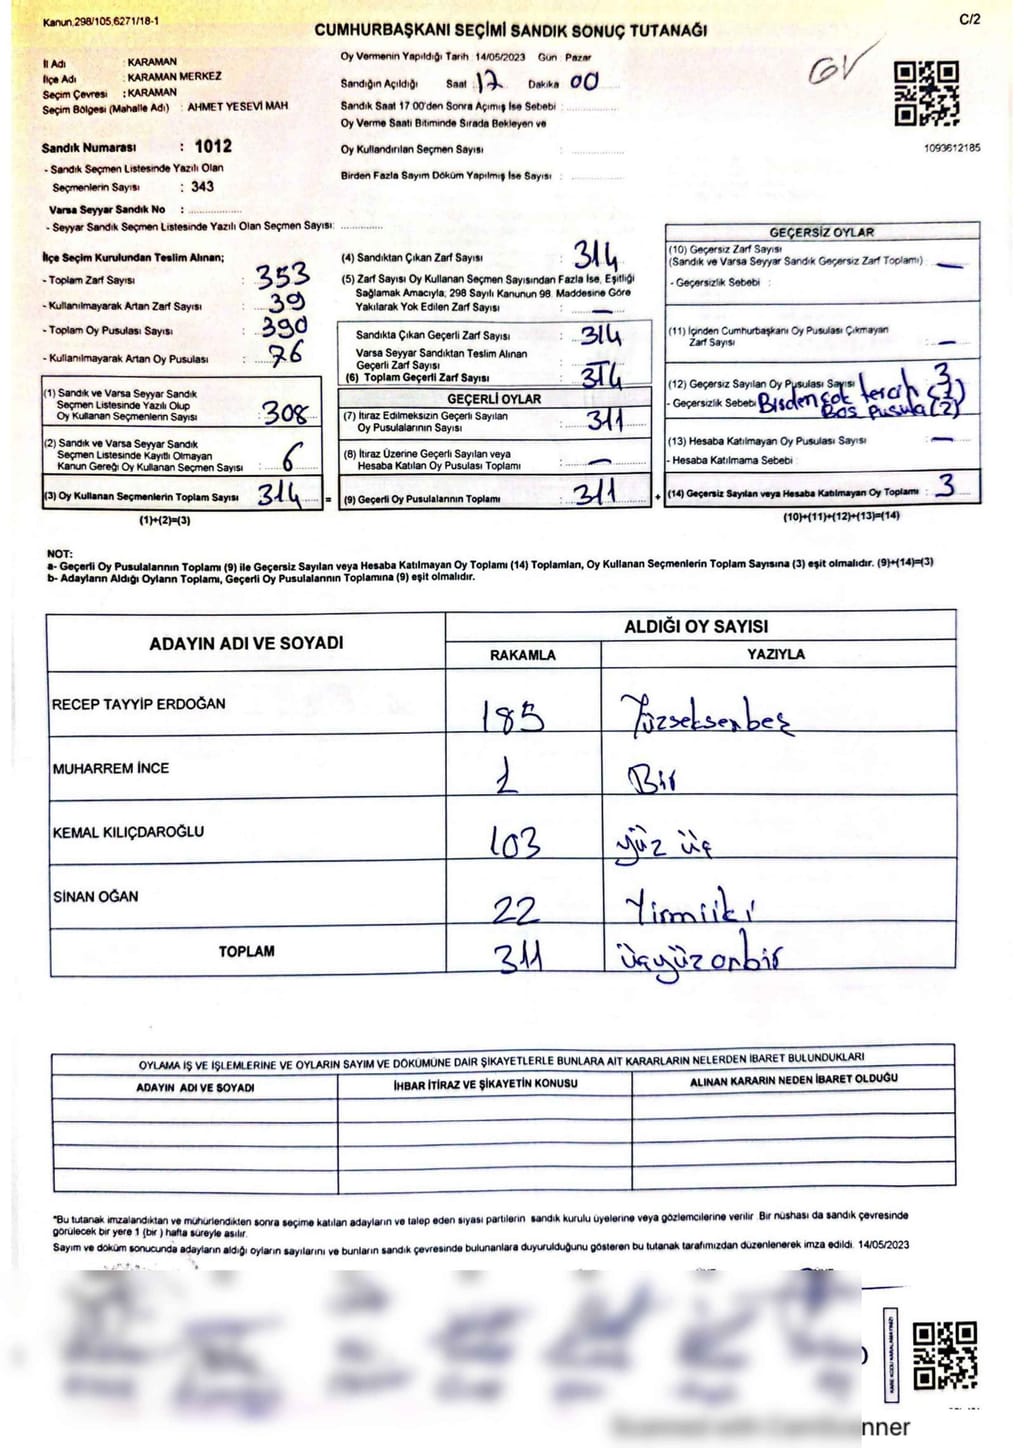 Kanun.298/105,6271/18-1
C/2
CUMHURBAŞKANI SEÇİMİ SANDIK SONUÇ TUTANAĞI
İl Adı : KARAMAN
İlçe Adı : KARAMAN MERKEZ
Seçim Çevresi : KARAMAN
Seçim Bölgesi (Mahalle Adı) : AHMET YESEVİ MAH
Oy Vermenin Yapıldığı Tarih 14/05/2023 Gün Pazar
Sandığın Açıldığı Saat 17 Dakika 00
Sandık Saat 17 00'den Sonra Açımış İse Sebebi :
Oy Verme Saati Bitiminde Sırada Bekleyen ve
Oy Kullandırılan Seçmen Sayısı :
Birden Fazla Sayım Döküm Yapılmış İse Sayısı :
GV
1093612185
Sandık Numarası : 1012
- Sandık Seçmen Listesinde Yazılı Olan
Seçmenlerin Sayısı : 343
Varsa Seyyar Sandık No :
- Seyyar Sandık Seçmen Listesinde Yazılı Olan Seçmen Sayısı:
İlçe Seçim Kurulundan Teslim Alınan;
- Toplam Zarf Sayısı : 353
- Kullanılmayarak Artan Zarf Sayısı : 39
- Toplam Oy Pusulası Sayısı : 390
- Kullanılmayarak Artan Oy Pusulası : 76
(1) Sandık ve Varsa Seyyar Sandık
Seçmen Listesinde Yazılı Olup
Oy Kullanan Seçmenlerin Sayısı : 308
(2) Sandık ve Varsa Seyyar Sandık
Seçmen Listesinde Kayıtlı Olmayan
Kanun Gereği Oy Kullanan Seçmen Sayısı : 6
(3) Oy Kullanan Seçmenlerin Toplam Sayısı : 314 =
(1)+(2)=(3)
(4) Sandıktan Çıkan Zarf Sayısı : 314
(5) Zarf Sayısı Oy Kullanan Seçmen Sayısından Fazla İse, Eşitliği
Sağlamak Amacıyla, 298 Sayılı Kanunun 98. Maddesine Göre
Yakılarak Yok Edilen Zarf Sayısı : —
Sandıkta Çıkan Geçerli Zarf Sayısı : 314
Varsa Seyyar Sandıktan Teslim Alınan
Geçerli Zarf Sayısı : —
(6) Toplam Geçerli Zarf Sayısı : 314
GEÇERLİ OYLAR
(7) İtiraz Edilmeksizin Geçerli Sayılan
Oy Pusulalarının Sayısı : 311
(8) İtiraz Üzerine Geçerli Sayılan veya
Hesaba Katılan Oy Pusulası Toplamı : —
(9) Geçerli Oy Pusulalarının Toplamı : 311 +
GEÇERSİZ OYLAR
(10) Geçersiz Zarf Sayısı
(Sandık ve Varsa Seyyar Sandık Geçersiz Zarf Toplamı) : —
- Geçersizlik Sebebi :
(11) İçinden Cumhurbaşkanı Oy Pusulası Çıkmayan
Zarf Sayısı : —
(12) Geçersiz Sayılan Oy Pusulası Sayısı : 3
- Geçersizlik Sebebi : Birden çok tercih (1)
Boş pusula (2)
(13) Hesaba Katılmayan Oy Pusulası Sayısı : —
- Hesaba Katılmama Sebebi :
(14) Geçersiz Sayılan veya Hesaba Katılmayan Oy Toplamı : 3
(10)+(11)+(12)+(13)=(14)
NOT:
a- Geçerli Oy Pusulalarının Toplamı (9) ile Geçersiz Sayılan veya Hesaba Katılmayan Oy Toplamı (14) Toplamları, Oy Kullanan Seçmenlerin Toplam Sayısına (3) eşit olmalıdır. (9)+(14)=(3)
b- Adayların Aldığı Oyların Toplamı, Geçerli Oy Pusulalarının Toplamına (9) eşit olmalıdır.
ADAYIN ADI VE SOYADI
ALDIĞI OY SAYISI
RAKAMLA YAZIYLA
RECEP TAYYİP ERDOĞAN 185 Yüzseksenbeş
MUHARREM İNCE 1 Bir
KEMAL KILIÇDAROĞLU 103 yüz üç
SİNAN OĞAN 22 Yirmiiki
TOPLAM 311 üçyüzonbir
OYLAMA İŞ VE İŞLEMLERİNE VE OYLARIN SAYIM VE DÖKÜMÜNE DAİR ŞİKAYETLERLE BUNLARA AİT KARARLARIN NELERDEN İBARET BULUNDUKLARI
ADAYIN ADI VE SOYADI İHBAR İTİRAZ VE ŞİKAYETİN KONUSU ALINAN KARARIN NEDEN İBARET OLDUĞU
*Bu tutanak imzalandıktan ve mühürlendikten sonra seçime katılan adayların ve talep eden siyasi partilerin sandık kurulu üyelerine veya gözlemcilerine verilir. Bir nüshası da sandık çevresinde
görülecek bir yere 1 (bir ) hafta süreyle asılır.
Sayım ve döküm sonucunda adayların aldığı oyların sayılarını ve bunların sandık çevresinde bulunanlara duyurulduğunu gösteren bu tutanak tarafımızdan düzenlenerek imza edildi. 14/05/2023